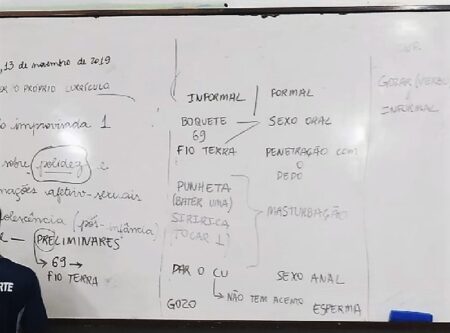 , 13 de novembro de 2019
R O PRÓPRIO CURRÍCULO
improvisada 1
sobre polidez e
mações afetivo-sexuais
olescência (pós-infância)
e — PRELIMINARES
→ 69 →
FIO TERRA
RTE
INFORMAL
FORMAL
BOQUETE
SEXO ORAL
69
FIO TERRA
PENETRAÇÃO COM
O
DEDO
PUNHETA
(BATER UMA)
SIRIRICA
TOCAR 1)
MASTURBAÇÃO
DAR O CU
SEXO ANAL
→ NÃO TEM ACENTO
GOZO
ESPERMA
INF.
GOZAR (VERBO)
INFORMAL